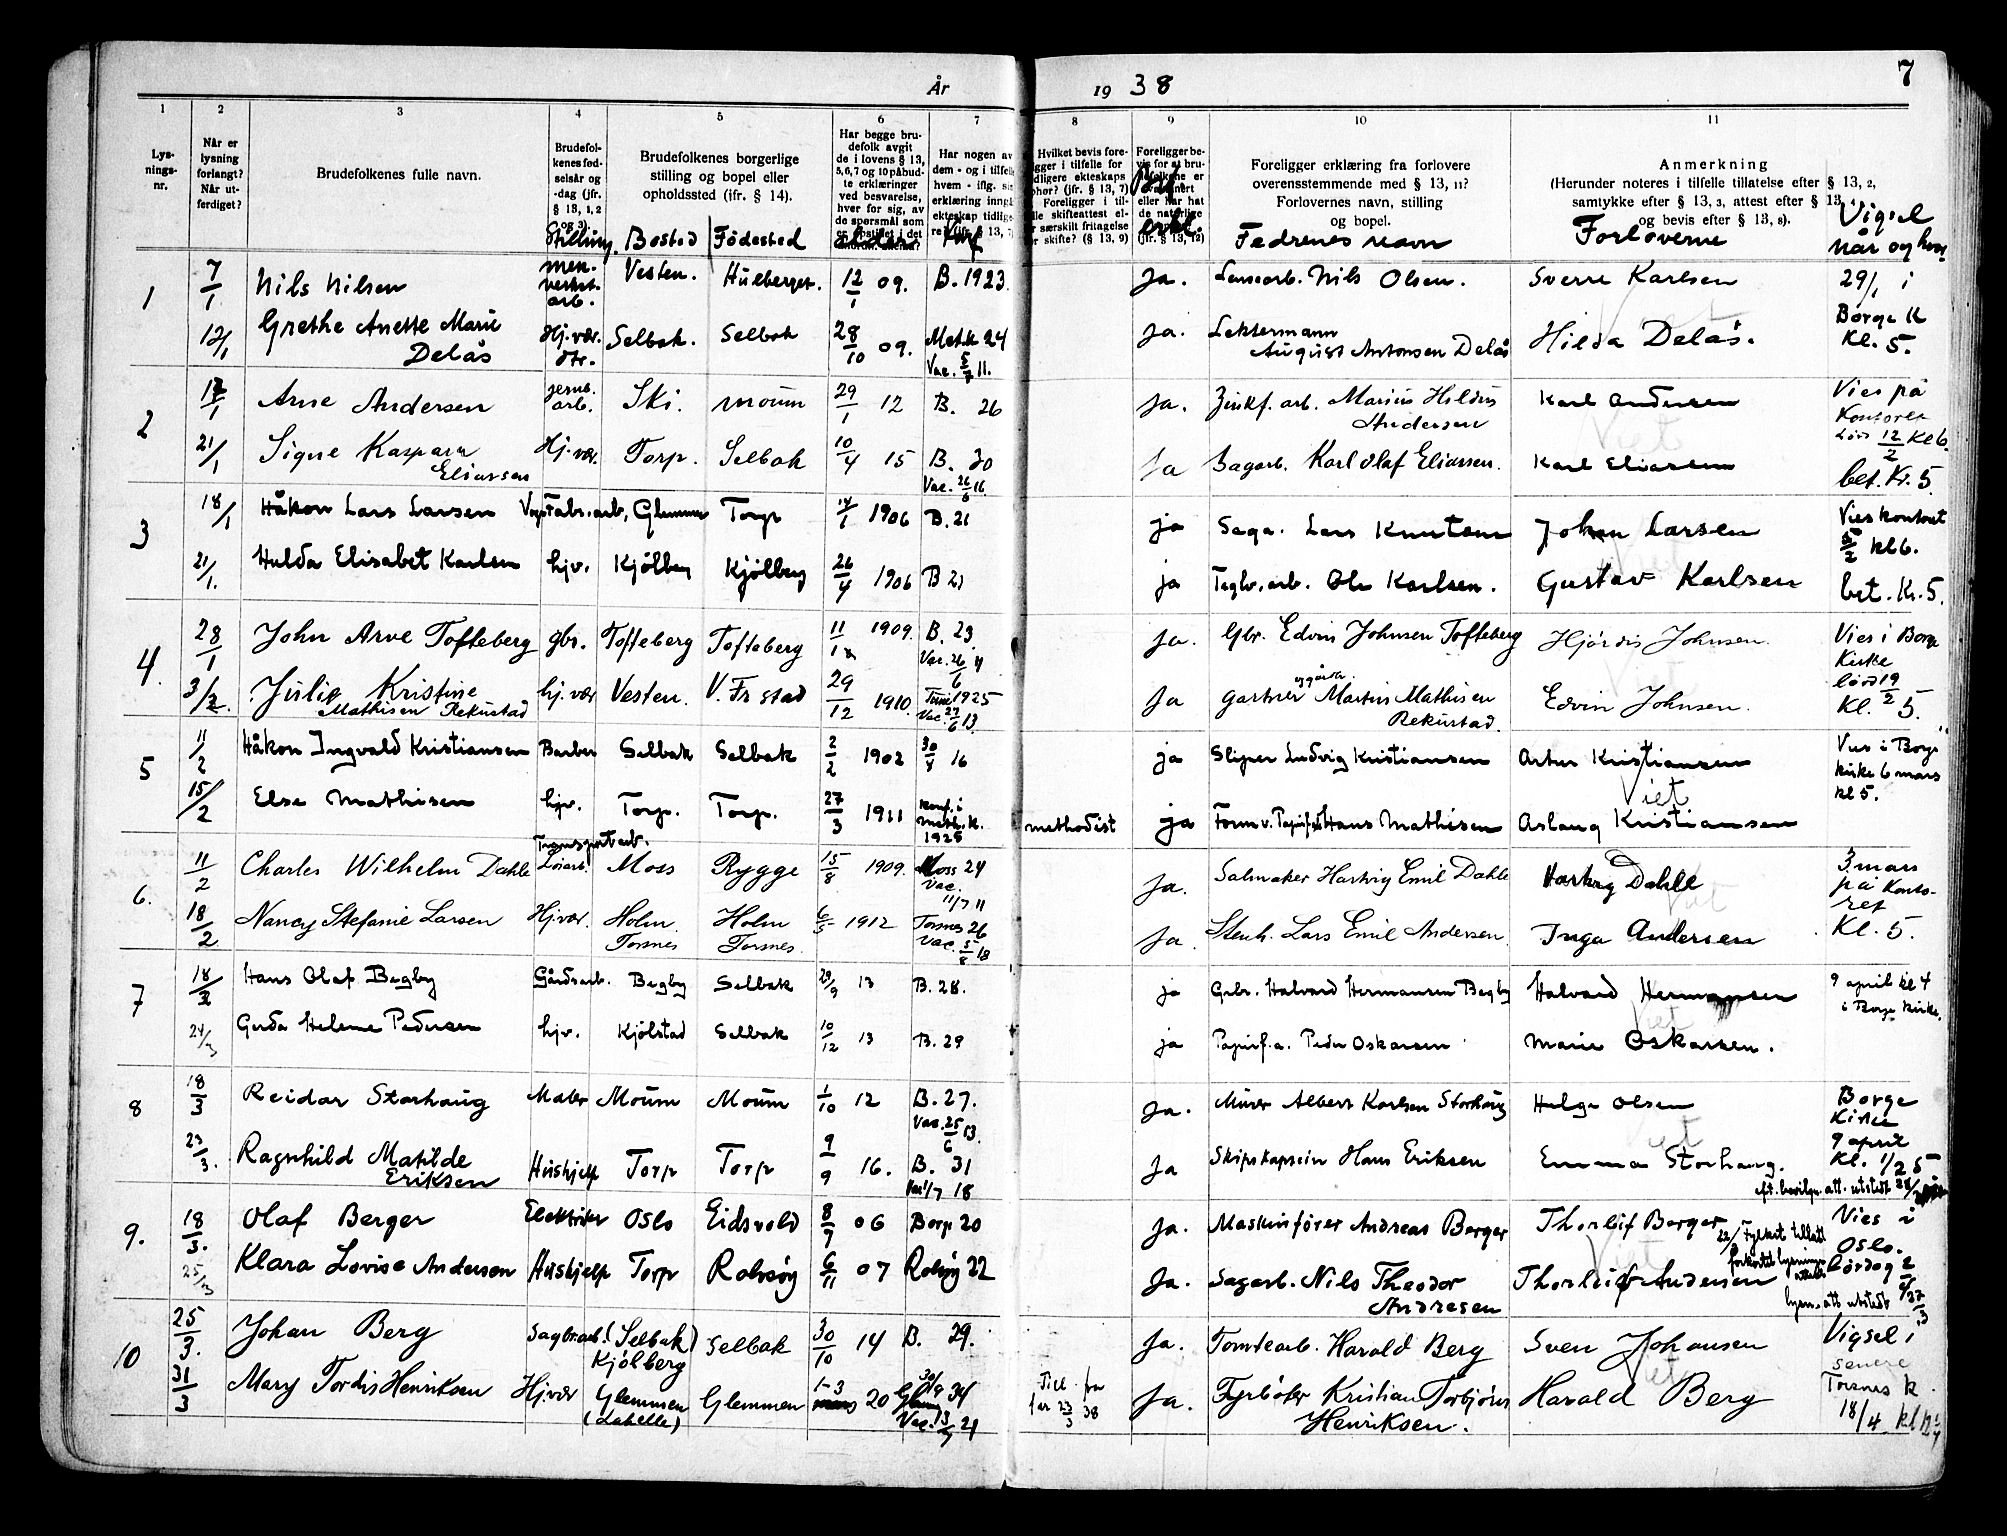 År 1938
7
1 2 3 4 5 6 7 8 9 10 11
Lysningsnr.
Når er lysning forlangt? Når utferdiget?
Brudefolkenes fulle navn.
Brudefolkenes fødselsår og -dag (jfr. § 13, 1, 2 og 3).
Brudefolkenes borgerlige stilling og bopel eller opholdssted (ifr. § 14).
Har begge brudefolk avgit de i lovens § 13, 5, 6, 7 og 10 påbudte erklæringer ved besvarelse, hver for sig, av de spørsmål som er
Har nogen av dem - og i tilfelle hvem - iflg. sin erklæring inngått ekteskap tidligere
Hvilket bevis foreligger i tilfelle for tidligere ekteskaps ophør? (jfr. § 13, 7) Foreligger i tilfelle skifteattest eller særskilt fritagelse for skifte? (§ 13, 9)
Foreligger bevis for at
eller har hat de naturlige (jfr. § 13, 12)
Foreligger erklæring fra forlovere overensstemmende med § 13, 11? Forlovernes navn, stilling og bopel.
Anmerkning (Herunder noteres i tilfelle tillatelse efter § 13, 2, samtykke efter § 13, 3, attest efter § 13, 4, og bevis efter § 13, 8).
Stilling Bosted Fødested Konf. erkl. Fedrenes navn Forloverne Vigsel når og hvor
1 7/1 Nils Nilsen mek. verkst. arb. Vesten. Hülberget. 12/1 09. B. 1923. Ja. Nils Olsen. Sverre Karlsen 29/1 i
12/1 Grethe Anette Marie Delås Hj.vær. Selbak. Selbak 28/10 09. Met.k 24 Vac. 5/7 11. Ja. Lektermann August Antonsen Delås Hilda Delås. Borge K Kl. 5.
2 12/1 Arne Andersen jernb. arb. Ski. Moum 29/1 12 B. 26 Ja. Zinkf. arb. Marius Hildus Andersen Karl Andersen Vies på Kontoret
21/1 Signe Kaspara Eliassen Hj.vær. Torp. Selbak 10/4 15 B. 30 Vac. 26/6 16. Ja Sagarb. Karl Olaf Eliassen. Karl Eliassen 12/2 Kl 6. bet. Kr. 5.
3 18/1 Håkon Lars Larsen Fabr. arb, Glemmen Torp 14/1 1906 B. 21 ja Saga. Lars Knutsen Johan Larsen Vies kontoret 5/2 kl 6.
21/1. Hulda Elisabet Karlsen hjv. Kjølberg Kjølberg 26/4 1906 B 21 ja Teglv. arb. Ole Karlsen. Gustav Karlsen bet. Kr. 5.
4. 28/1 John Arve Tofteberg gbr. Tofteberg Tofteberg 11/12 1909. B. 23. Vac. 26/6 11 Ja. Gbr. Edvin Johnsen Tofteberg Hjördis Johnsen. Vies i Borge Kirke
3/2. Julie Kristine Mathisen Rekustad hj.vær Vesten. V. Fr stad 29/12 1910. Tune 1925 Vac. 27/6 13. Ja gartner Martin Mathisen Rekustad. Edvin Johnsen. lørd 19/2 Kl. 5.
5 11/2 Håkon Ingvald Kristiansen Barber Selbak Selbak 2/2 1902 30/4 16 ja Sliper Ludvig Kristiansen Artur Kristiansen Vies i Borge kirke 6 mars kl 5.
15/2 Else Mathisen hjv. Torp. Torp. 27/3 1911 konf. i meth. k. 1925 methodist ja Form v. Papirfab Hans Mathisen Aslaug Kristiansen Viet
6. 11/2 Charles Wilhelm Dahle Transportarb. Moss Rygge 15/8 1909. Moss 24 Vac. 11/7 11 Ja. Salmaker Hartvig Emil Dahle Hartvig Dahle 3 mars på Kontoret
18/2 Nancy Stefanie Larsen Hj.vær. Holm Torsnes Holm Torsnes. 6/5 1912 Torsnes 26 Vac. 5/8 18 Ja. Stenh. Lars Emil Andersen Inga Andersen Kl. 5.
7 18/3 Hans Olaf Begby Gårdsarb. Begby Selbak 29/9 13 B. 28. ja Gårbr. Halvard Hermansen Begby Halvard Hermansen 9 april kl 4 i Borge kirke.
24/3 Gerda Helene Pedersen hjv. Kjølstad Selbak 10/12 13 B. 29 ja Papirf. a. Peder Oskarsen Marie Oskarsen. Viet
8 18/3 Reidar Storhaug Maler Moum Moum 1/10 12 B. 27. Vac. 25/6 13. Ja. Murer Albert Karlsen Storhaug Helge Olsen Borge Kirke
23/3. Ragnhild Matilde Eriksen Hushjelp Torp Torp 9/9 16. B. 31 Vac 1/7 18 Ja Skipskaptein Hans Eriksen Emma Storhaug. 9 april Kl. 1/2 5
9. 18/3. Olaf Berger Elektriker Oslo Eidsvold 8/7 06 Borge 20 Ja. Maskinfører Andreas Berger Thorleif Berger 22/ Fylket tillatt forkortet lysnings Vies i Oslo.
25/3 Klara Lovise Andersen Hushjelp Torp Rolvsøy 6/11 07 Rolvsøy 22 Ja. Sagarb. Nils Theodor Andresen Thorleif Andersen lysn. att utstedt 27/3 lørdag 2/4
10 25/3. Johan Berg Sagbr.arb. (Selbak) Kjølberg Selbak 30/10 14 B. 29. Ja. Tomtearb. Harald Berg Sven Johansen Vigsel i senere
31/3 Mary Tordis Henriksen Hj.vær Glemmen (Labelle) Glemmen 1-3 20 Glem 30/9 34 Vac. 13/7 21 Till. fra far 23/3 38 Ja. Fyrbøter Kristian Torbjørn Henriksen. Harald Berg Torsnes K. 18/4